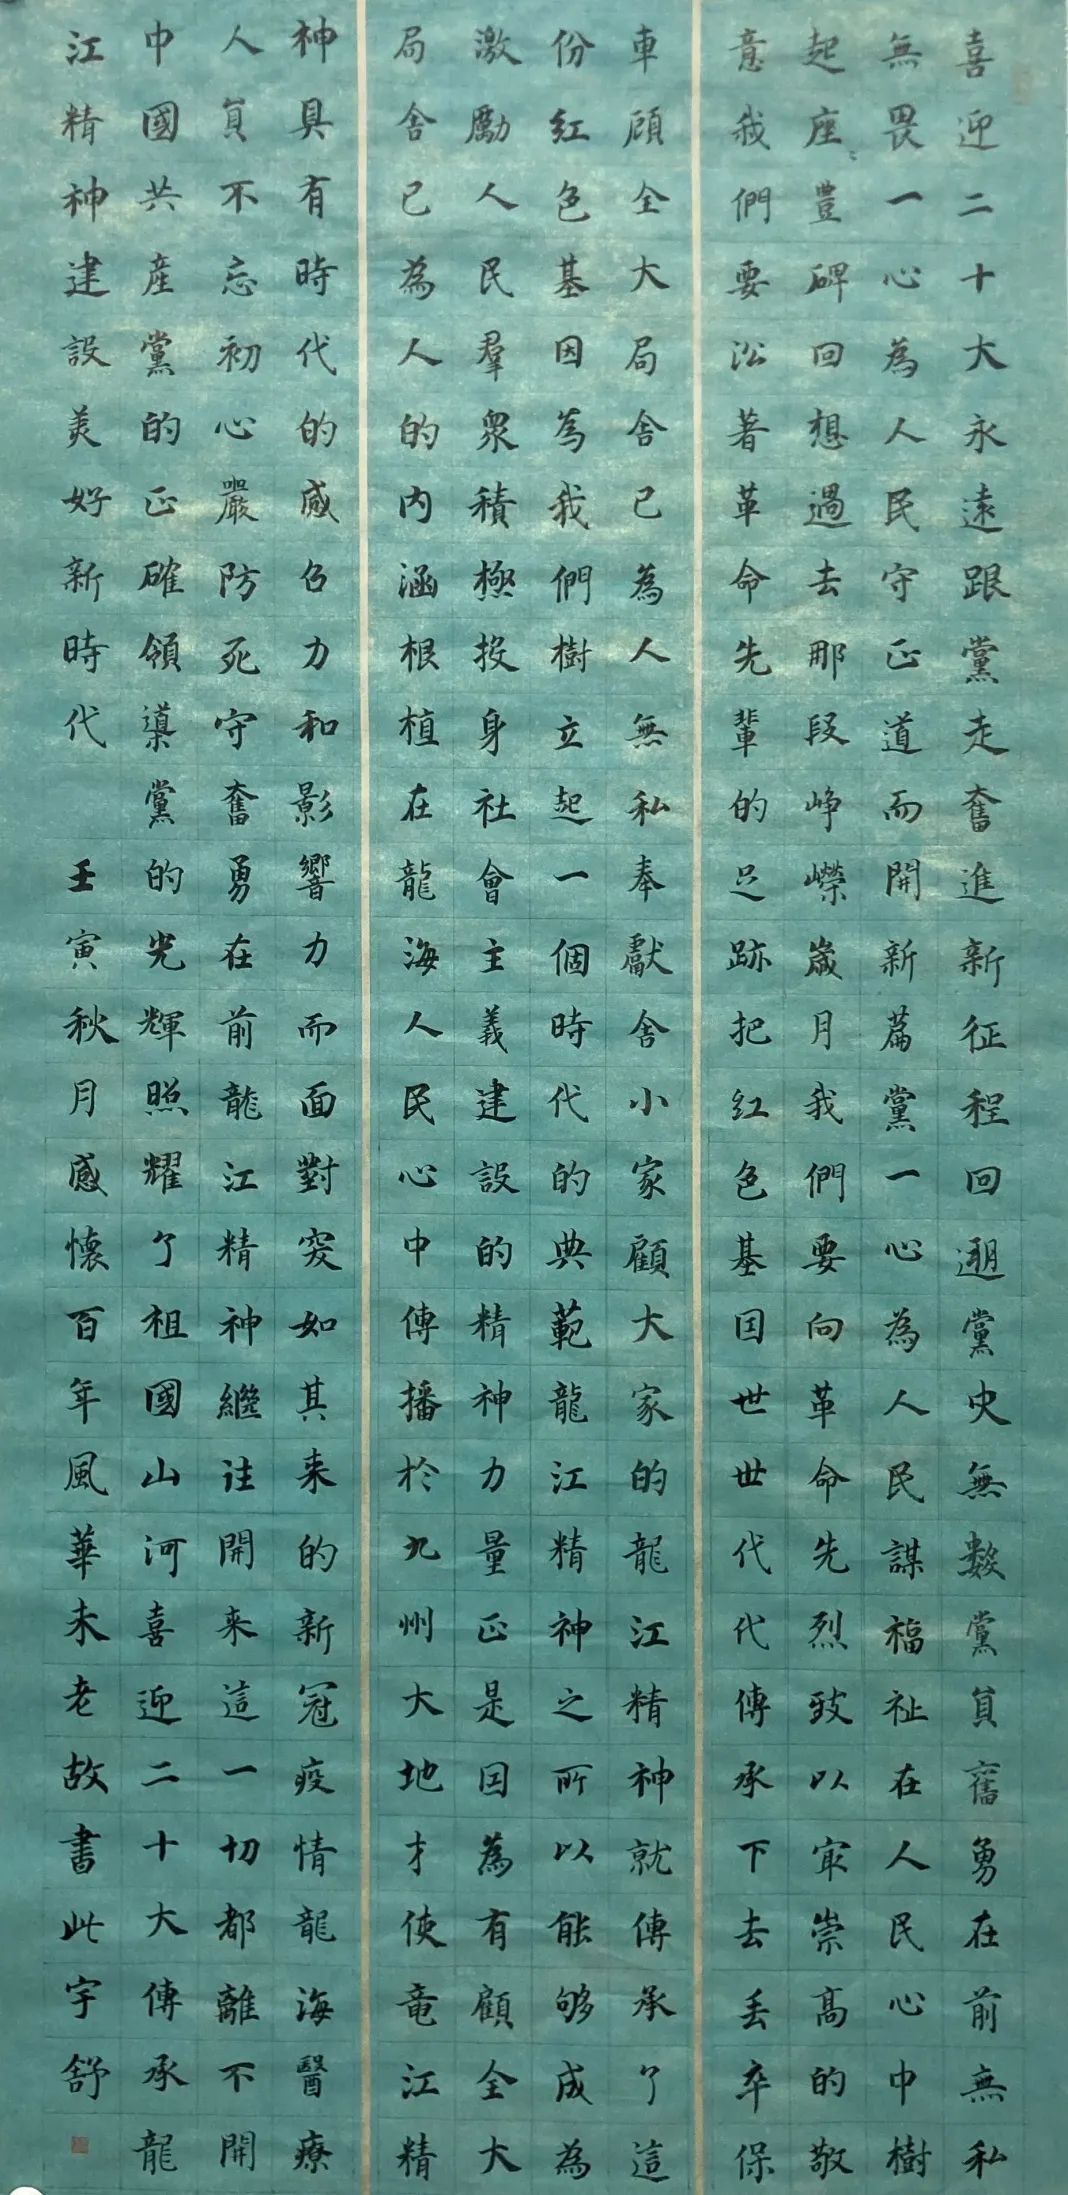 喜迎二十大永遠跟黨走奮進新征程回遡黨史無數黨員奮勇在前無私
無畏一心為人民守正道而開新篇黨一心為人民謀福祉在人民心中樹
起座豐碑回想過去那段崢嶸歲月我們要向革命先烈致以最崇高的敬
意我們要沿著革命先輩的足跡把紅色基因世世代代傳承下去丢卒保
車顧全大局舍己為人無私奉獻舍小家顧大家的龍江精神就傳承了這
份紅色基因為我們樹立起一個時代的典範龍江精神之所以能够成為
激勵人民羣衆積極投身社會主義建設的精神力量正是因為有顧全大
局舍己為人的内涵根植在龍海人民心中傳播於九州大地才使竜江精
神具有時代的感召力和影響力而面對突如其来的新冠疫情龍海醫療
人員不忘初心嚴防死守奮勇在前龍江精神繼往開来這一切都離不開
中國共產黨的正確領導黨的光輝照耀了祖國山河喜迎二十大傳承龍
江精神建設美好新時代 壬寅秋月感懷百年風華未老故書此宇舒